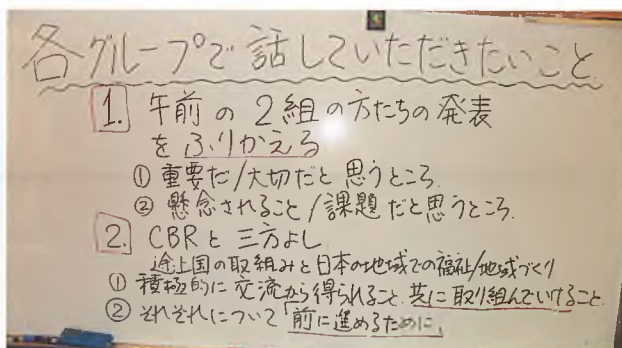 各グループで話していただきたいこと
1. 午前の2組の方たちの発表
をふりかえる
① 重要だ/大切だと思うところ.
② 懸念されること/課題だと思うところ.
2. CBRと三方よし
途上国の取組みと日本の地域での福祉/地域づくり
① 積極的に交流から得られること.共に取り組んでいけること
② それぞれについて「前に進めるために」